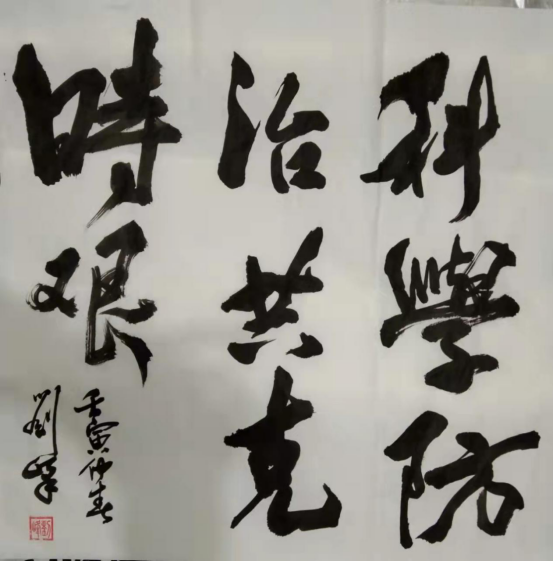 科學防
治共克
時艱
壬寅仲春
劉峰